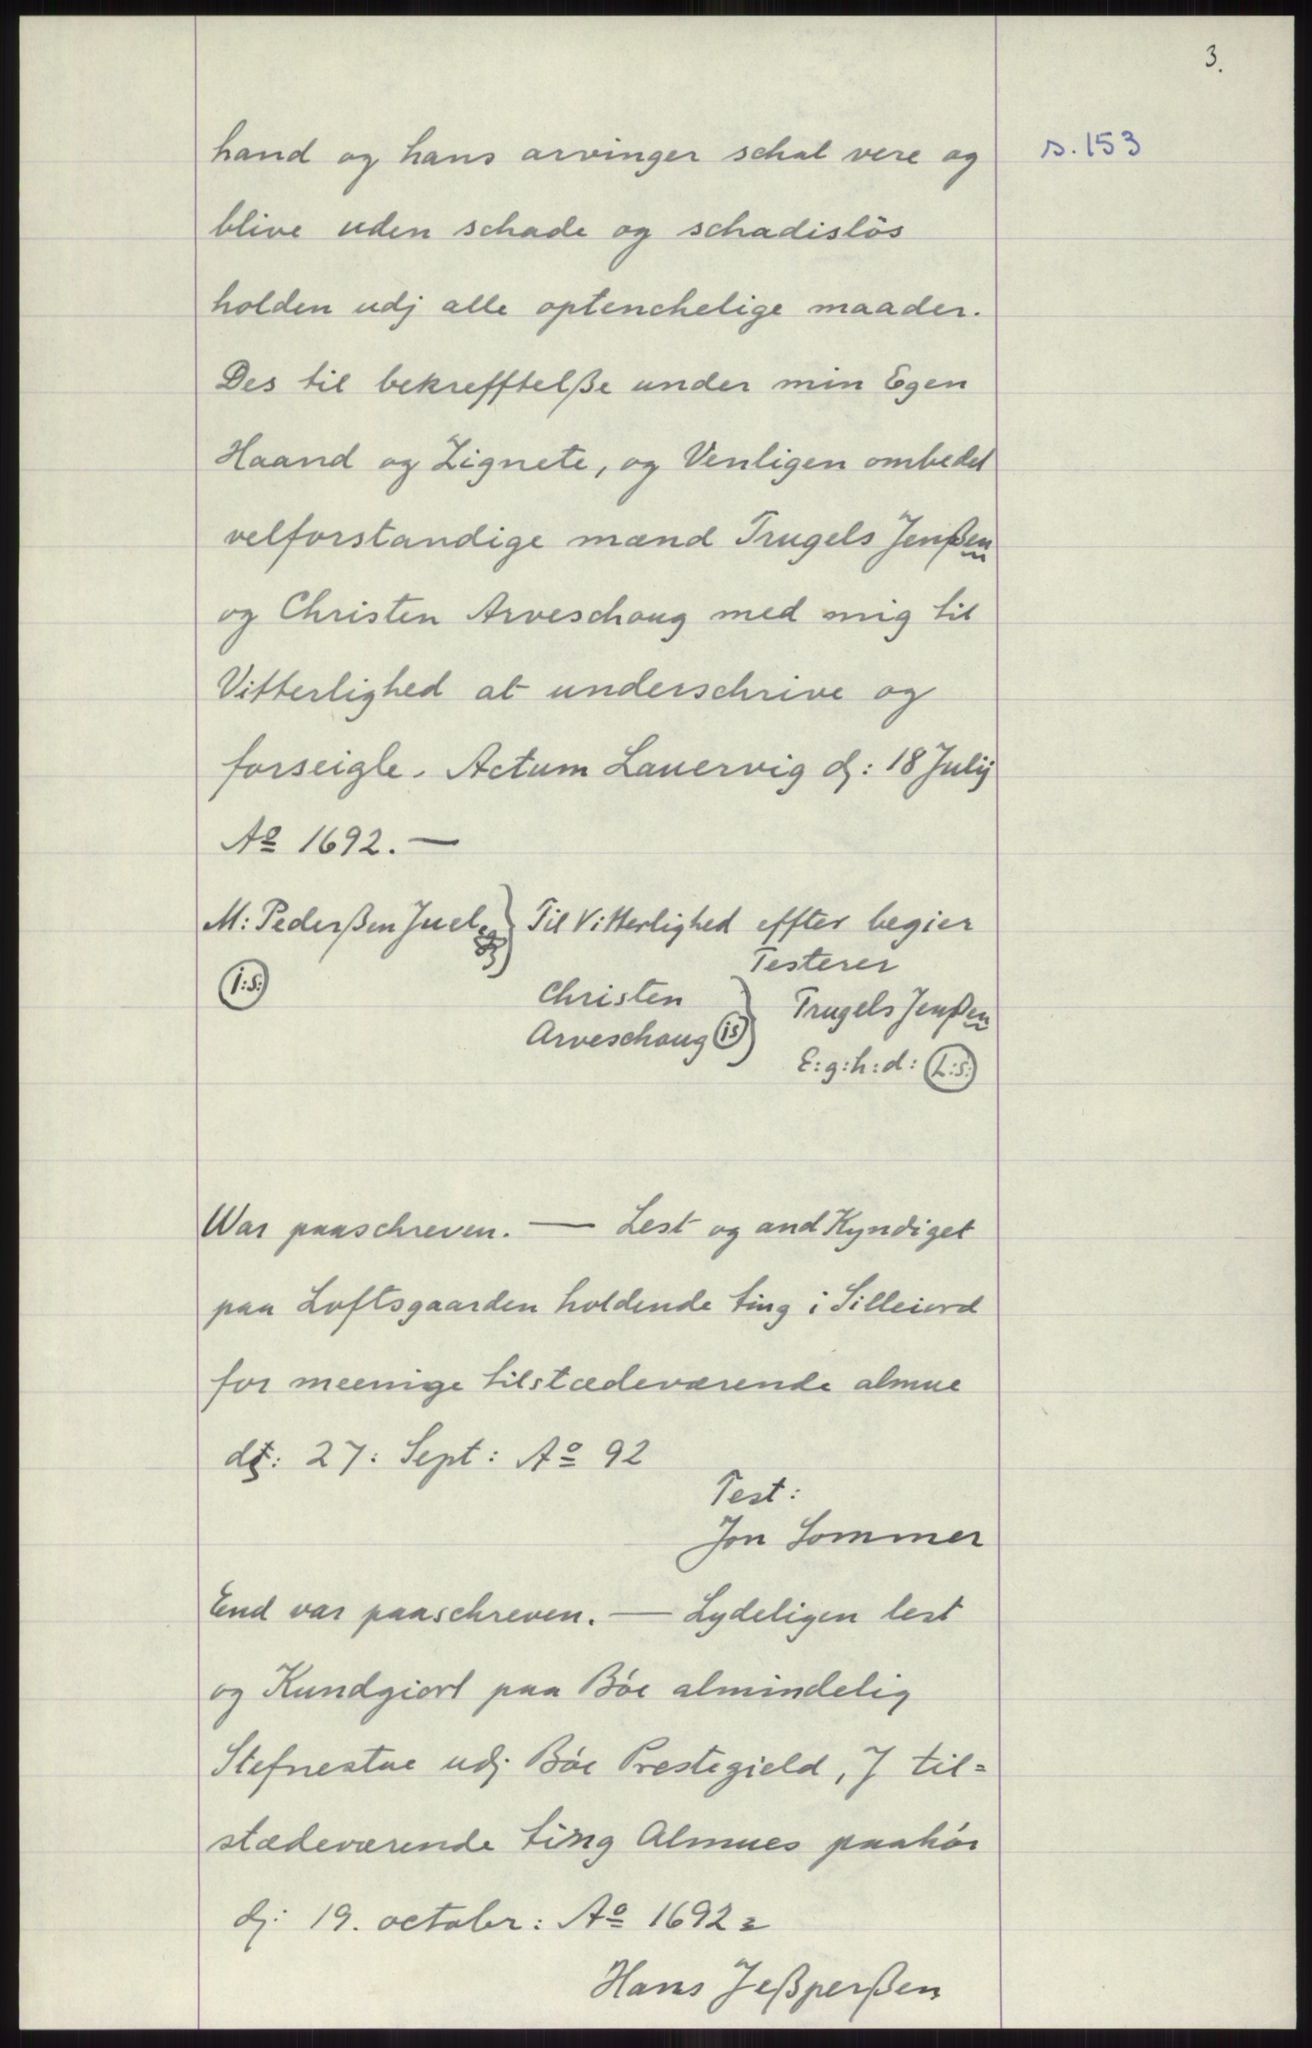 3.
hand og hans arvinger schal vere og
s. 153
blive uden schade og schadislös
holden udj alle optenchelige maader.
Des til bekrefftelße under min Egen
Haand og Zignete, og Venligen ombedet
velforstandige mænd Trugels Jenßen
og Christen Arveschoug med mig til
Vitterlighed at underschrive og
forseigle. Actum Lauervig dj: 18 Julij
Aº 1692. —
M: Pederßen Juel } Til Vitterlighed effter begier
Testerer
(i:s:)
Christen
Arveschoug (is) }
Trugels Jenßen
E:g:h:d: (L:S:)
War paaschreven. — Lest og and Kyndiget
paa Loftsgaarden holdende ting i Silleiord
for meenige tilstædeværende almue
27: Sept: Aº 92
Test:
Jon Sommer
End var paaschreven. — Lydeligen lest
og Kundgiort paa Böe almindelig
Stefnestue udj Böe Prestegield, J til=
stædeværende ting Almues paahör
dj: 19. octobr: Aº 1692 =
Hans Jeßperßen